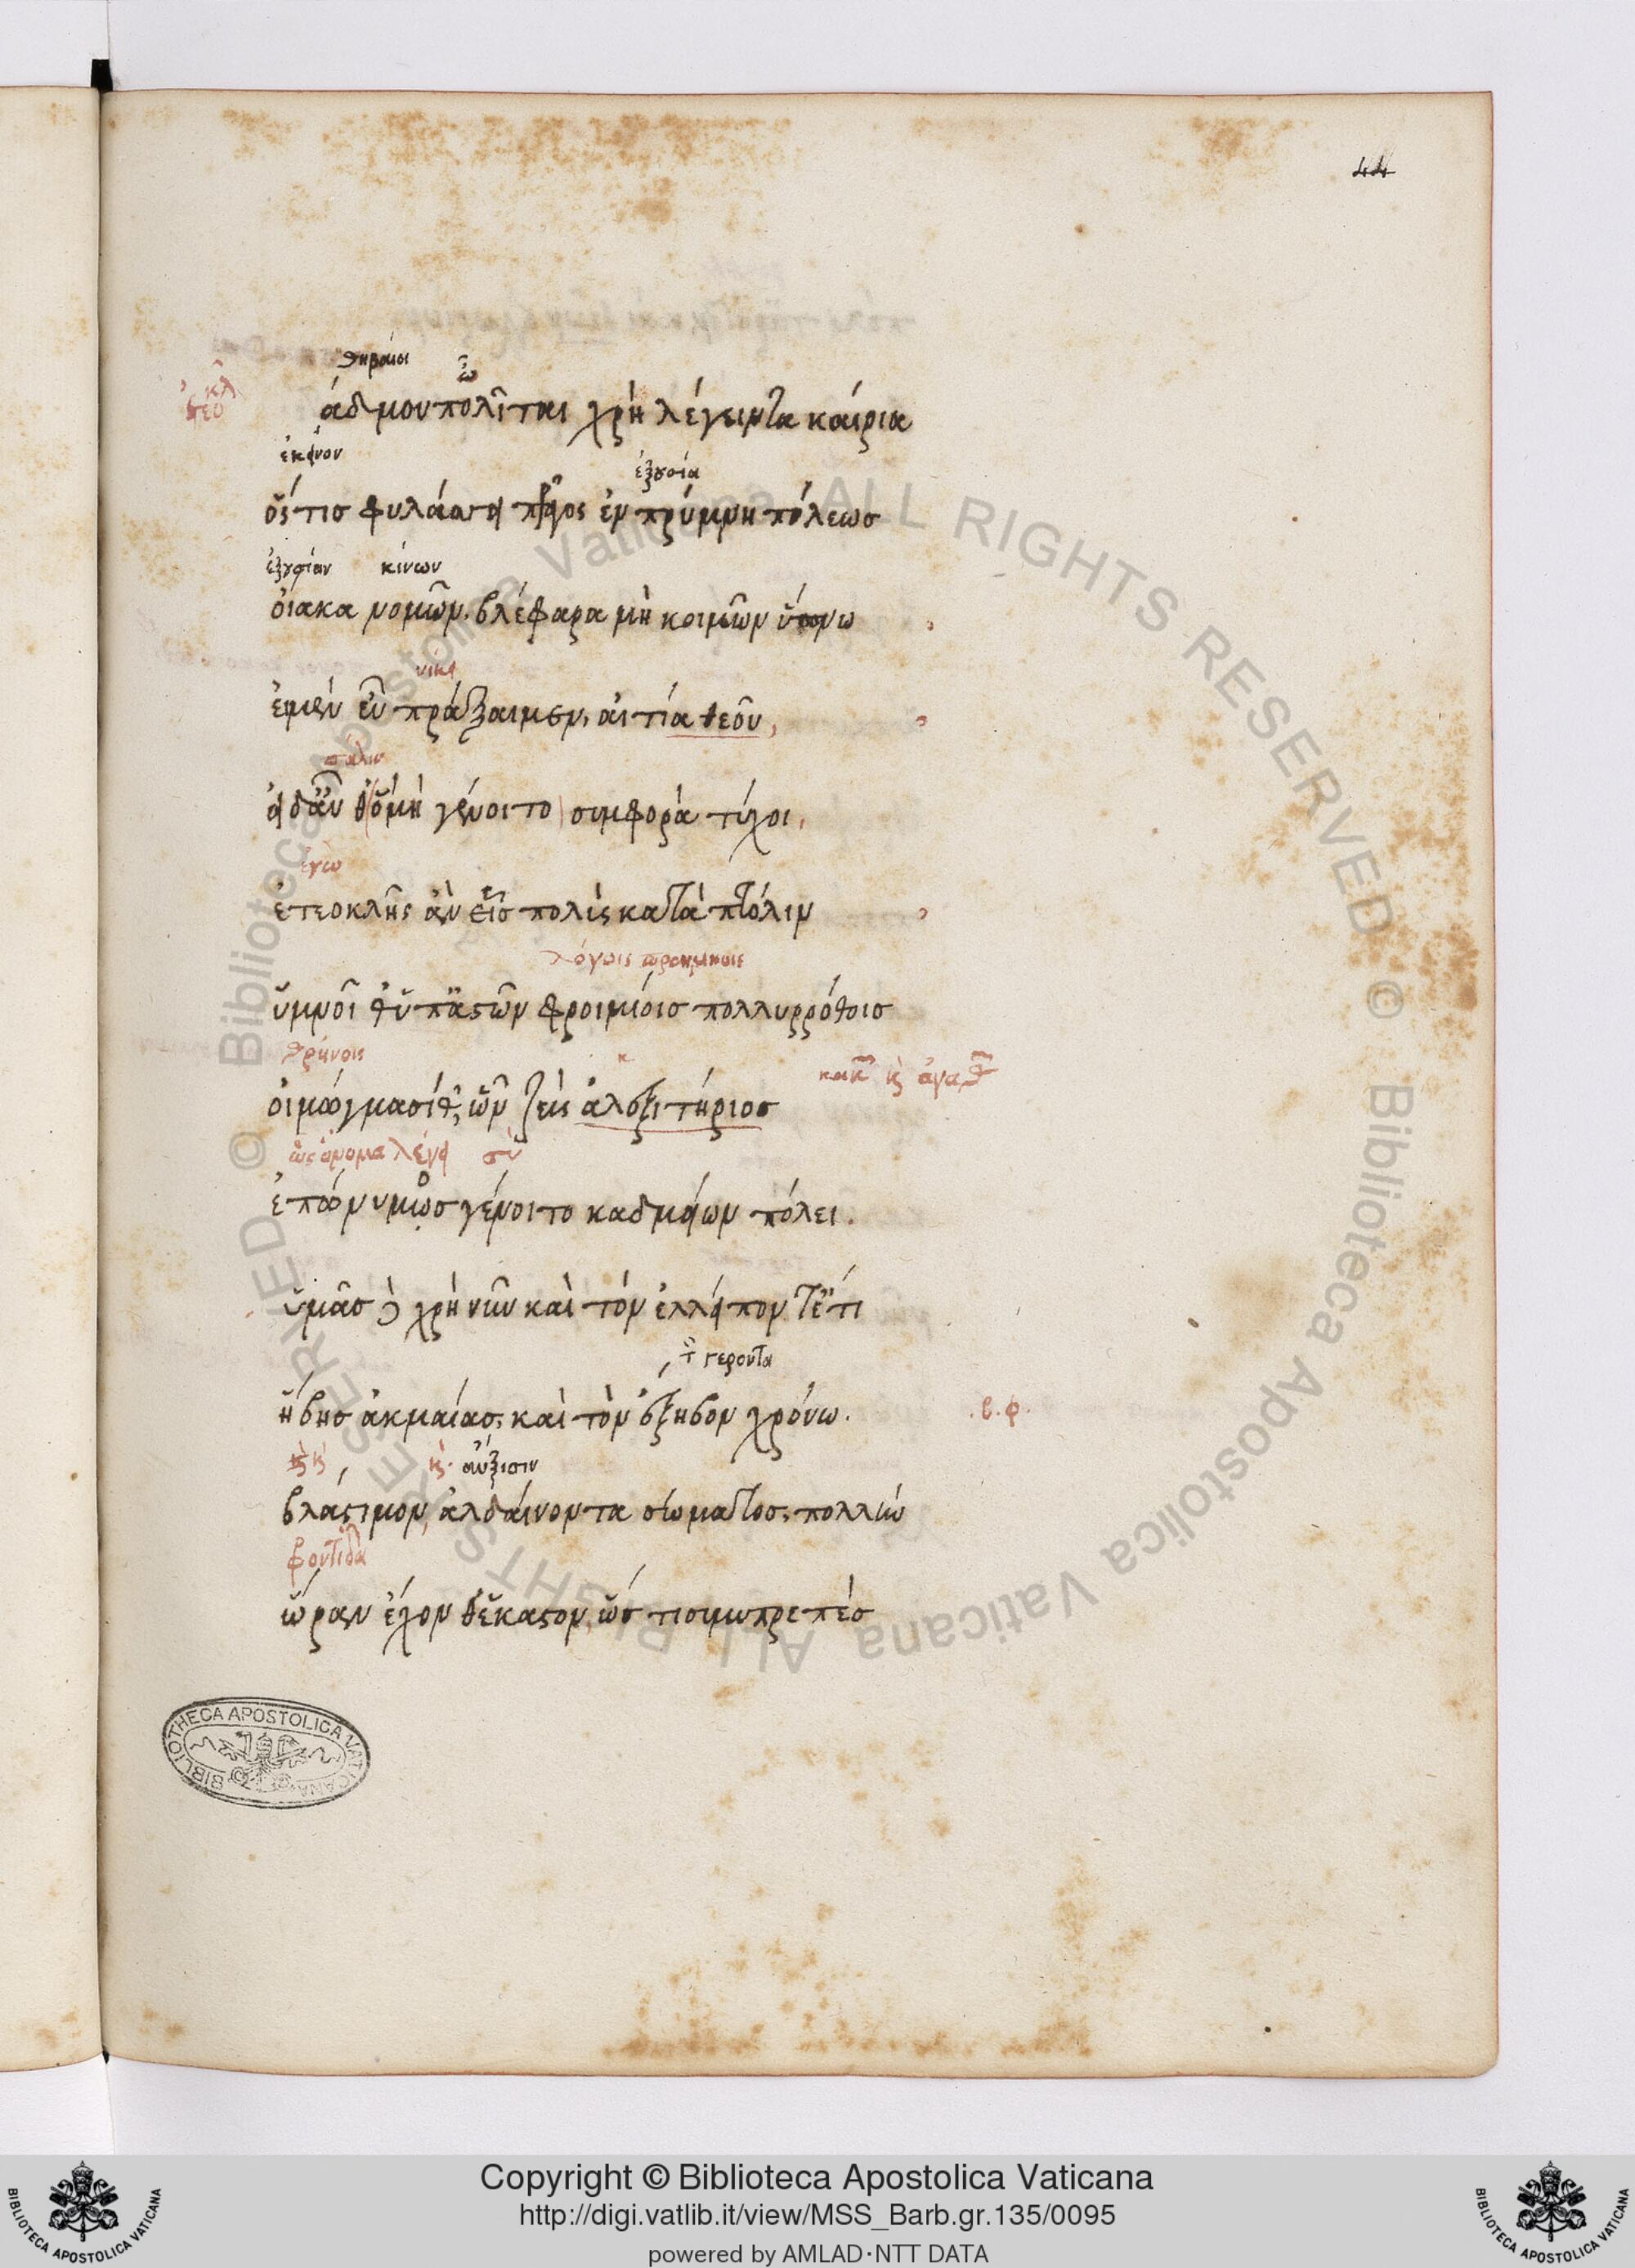 44
θηβαῖοι ὦ
ἐτεοκλ
άδμου πολῖται χρὴ λέγειν τα καίρια
ἐκεῖνον ἐξουσία
ὅστις φυλάσσει πρᾶγος ἐν πρύμνη πόλεως
ἐξουσίαν κίνων
οἴακα νομῶν. βλέφαρα μὴ κοιμῶν ὕπνω
νίκη
ἐι μὲν εὖ πράξαιμεν, αἰτία θεοῦ,
πάλιν
εἰ δ' ἂν θ' ὃ μὴ γένοιτο συμφορὰ τύχοι,
ἐγὼ
ἐτεοκλῆς ἂν εἷς πολὺς κατὰ πτόλιν
λόγοις προοιμίοις
ὑμνοῖθ' ὑπ' ἀστῶν φροιμίοις πολλυρρόθοις
θρήνοις κακῶν καὶ ἀγαθ
οἰμώγμασίθ', ὧν ζεὺς ἀλεξιτήριος
ὡς ὄνομα λέγει
ἐπώνυμος γένοιτο καδμείων πόλει.
ὑμᾶς δὲ χρὴ νῦν καὶ τὸν ἐλλείποντ' ἔτι
τ γεροντα
ἥβης ἀκμαίας, καὶ τὸν ἔξηβον χρόνω. .β.φ.
καὶ αὔξισιν
βλάστιμον, ἀλδαίνοντα σώματος, πολλὺν
φροντίδα
ὥραν ἔχονθ' ἕκαστον, ὥς τι συμπρεπές
BIBLIOTHECA APOSTOLICA VATICANA
© Biblioteca Apostolica Vaticana ALL RIGHTS RESERVED © Biblioteca Apostolica Vaticana ALL RIGHTS RESERVED
Copyright © Biblioteca Apostolica Vaticana
http://digi.vatlib.it/view/MSS_Barb.gr.135/0095
powered by AMLAD·NTT DATA
BIBLIOTECA APOSTOLICA VATICANA
BIBLIOTECA APOSTOLICA VATICANA